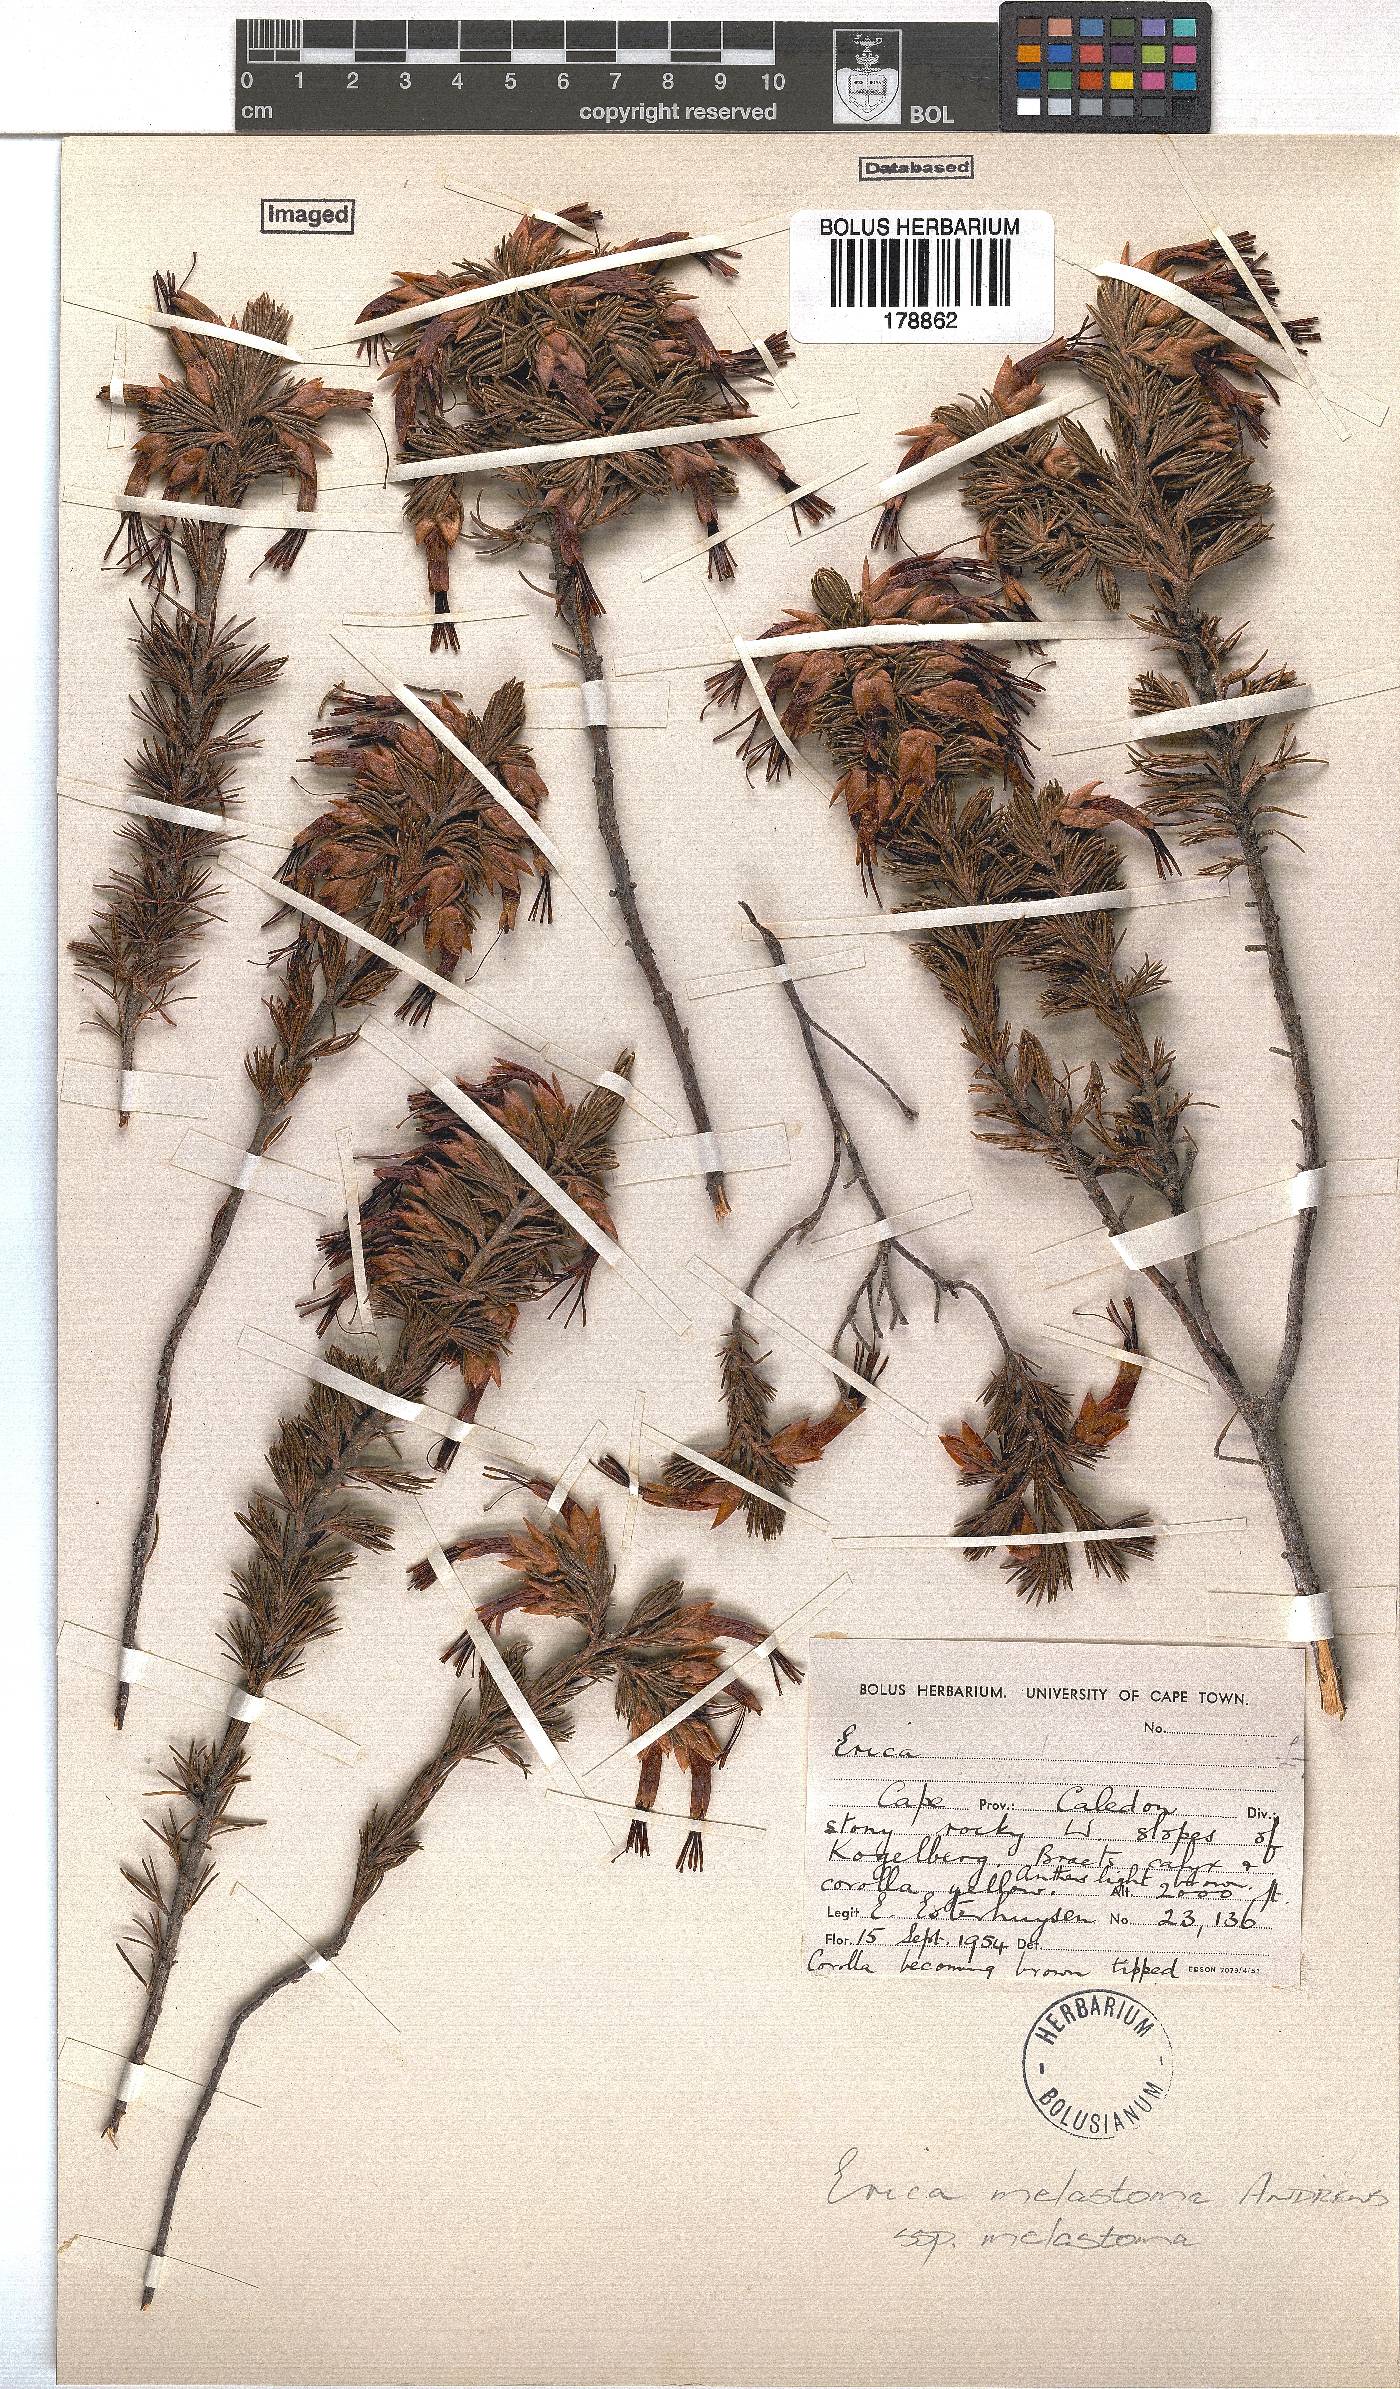 0 1 2 3 4 5 6 7 8 9 10
cm copyright reserved
BOL
Databased
Imaged
BOLUS HERBARIUM
178862
BOLUS HERBARIUM. UNIVERSITY OF CAPE TOWN.
No.
Erica
Cape Prov.: Caledon Div.:
stony rocky W. slopes of
Kogelberg. Bracts calyx &
corolla yellow. Anthers light brown.
Alt. 2000 ft.
Legit E. Esterhuysen No. 23,136
Flor. 15 Sept. 1954 Det.
Corolla becoming brown tipped
HERBARIUM
- BOLUSIANUM -
Erica melastoma ANDREWS
ssp. melastoma